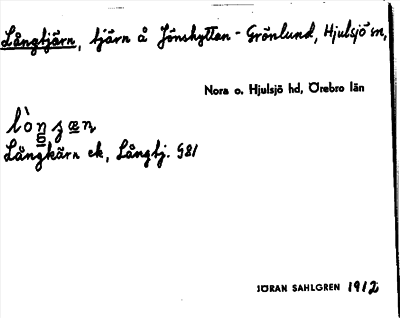 Långtjärn, tjärn å Jönshyttan - Grönlund, Hjulsjö sn,
Nora o. Hjulsjö hd, Örebro län
Långkärn ek, Långtj. G81
JÖRAN SAHLGREN 1912